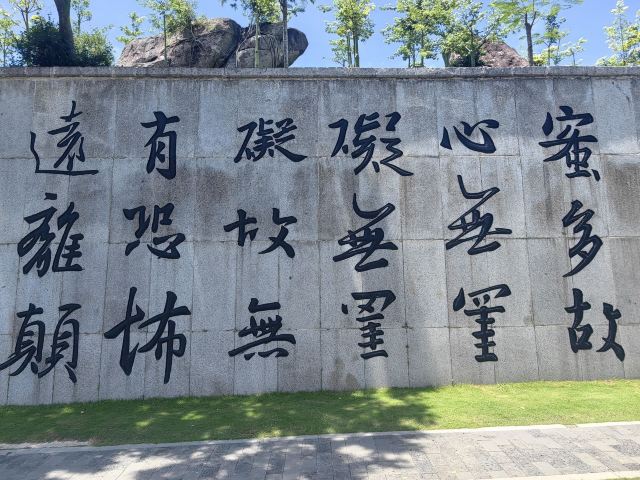 蜜多故
心無罣
礙無罣
礙故無
有恐怖
遠離顛